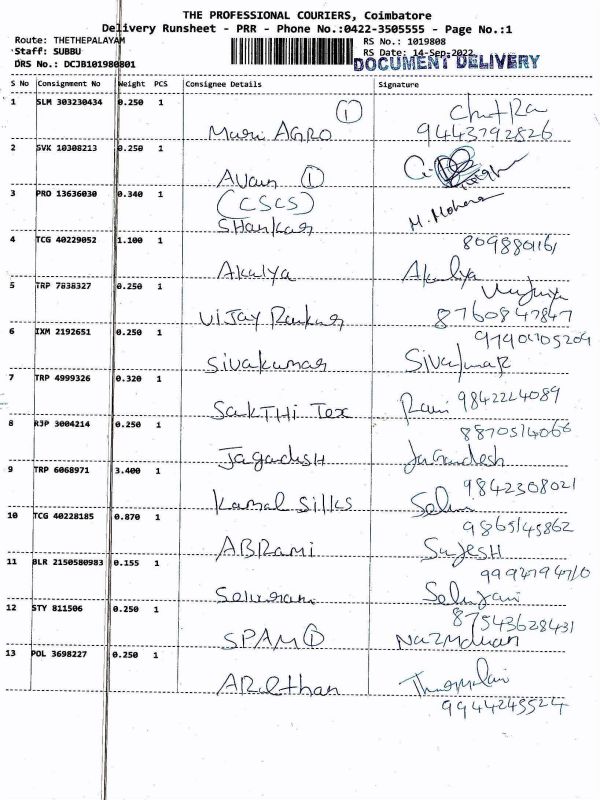 THE PROFESSIONAL COURIERS, Coimbatore
Delivery Runsheet - PRR - Phone No.:0422-3505555 - Page No.:1
Route: THETHEPALAYAM
RS No.: 1019808
Staff: SUBBU
RS Date: 14-Sep-2022
DRS No.: DCJB101980801
DOCUMENT DELIVERY
S No Consignment No Weight PCS Consignee Details Signature
1 SLM 303230434 0.250 1
Mari AGRO 1 ChitRa
9443792826
2 SVK 10308213 0.250 1
1
3 PRO 13636030 0.340 1
(CSCS)
Shankar M. Mohana
4 TCG 40229052 1.100 1
8098801161
Akalya Akaliya
5 TRP 7838327 0.250 1
Vijay 8760847847
6 IXM 2192651 0.250 1
Sivakumar SivakumaR
7 TRP 4999326 0.320 1
SakTHi Tex 9842224089
8 RJP 3004214 0.250 1
8870514066
JagadisH Jagandesh
9 TRP 6068971 3.400 1
9842308021
Kamal Silks
10 TCG 40228185 0.870 1
9865145862
ABRami SujesH
11 BLR 2150580983 0.155 1
Selvarani
12 STY 811506 0.250 1
8754362843
SPAM 1
13 POL 3698227 0.250 1
9944245524